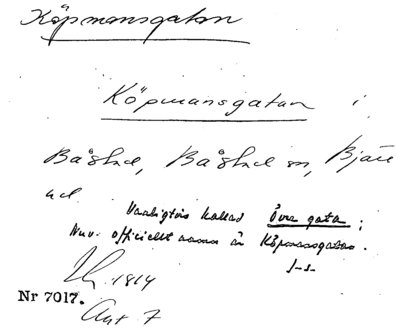 Köpmansgatan
Köpmansgatan i
Båstad, Båstad sn, Bjäre
hd.
Vanligtvis kallad Övre gata;
Nuv. officiellt namn är Köpmansgatan.
1814
Nr 7017.
Ant 7